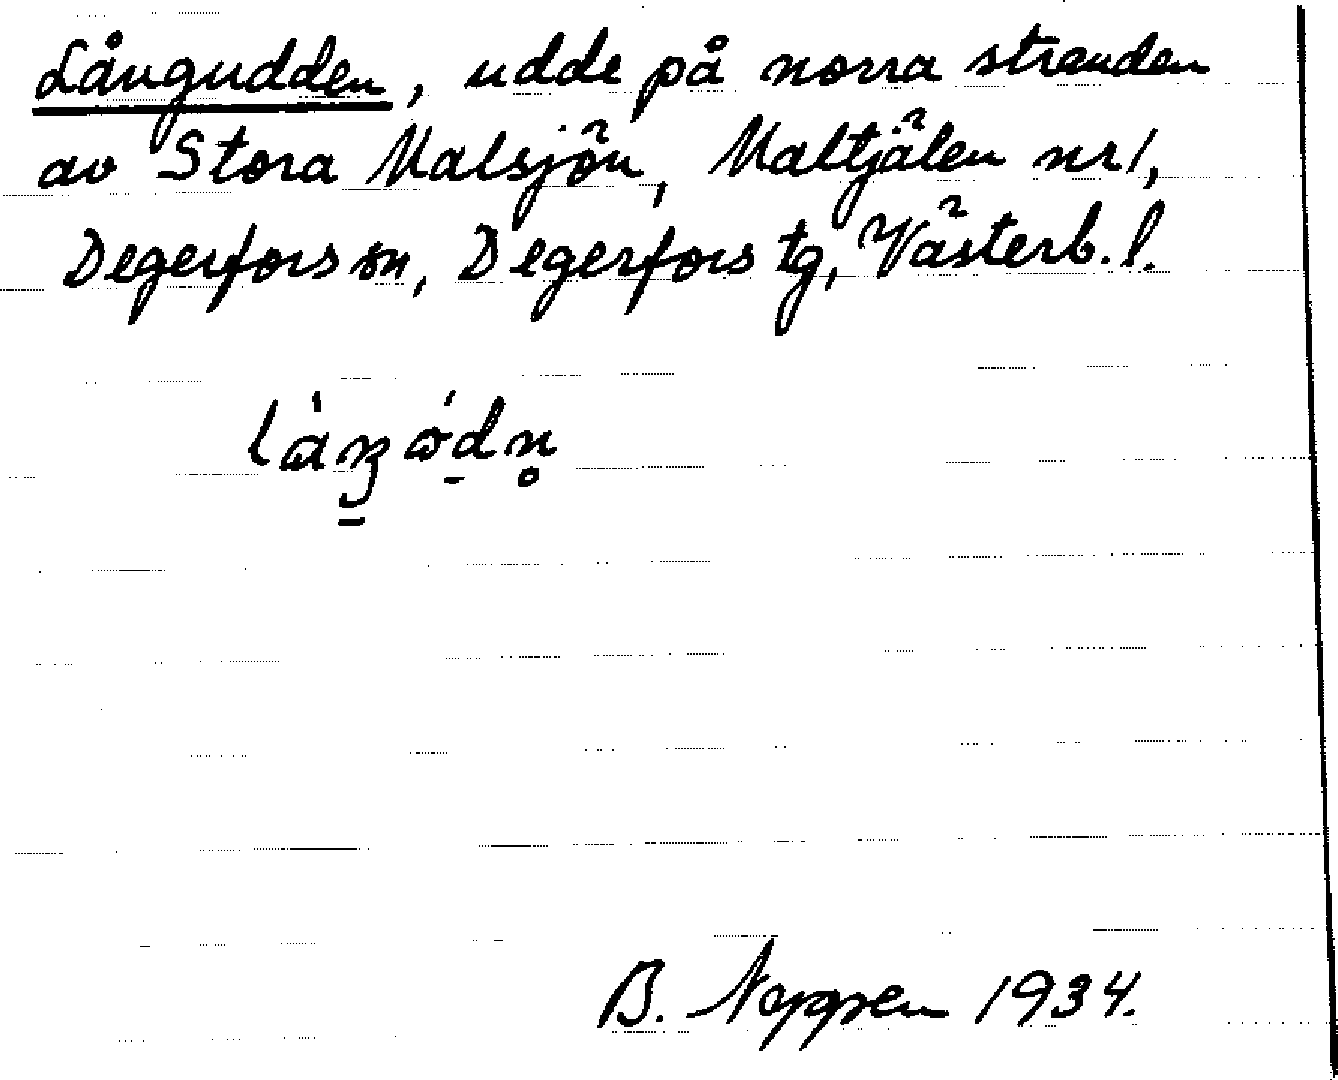 Långudden, udde på norra stranden
av Stora Malsjön, Maltjälen nr 1,
Degerfors sn, Degerfors tg, Västerb. l.
B. 1934.